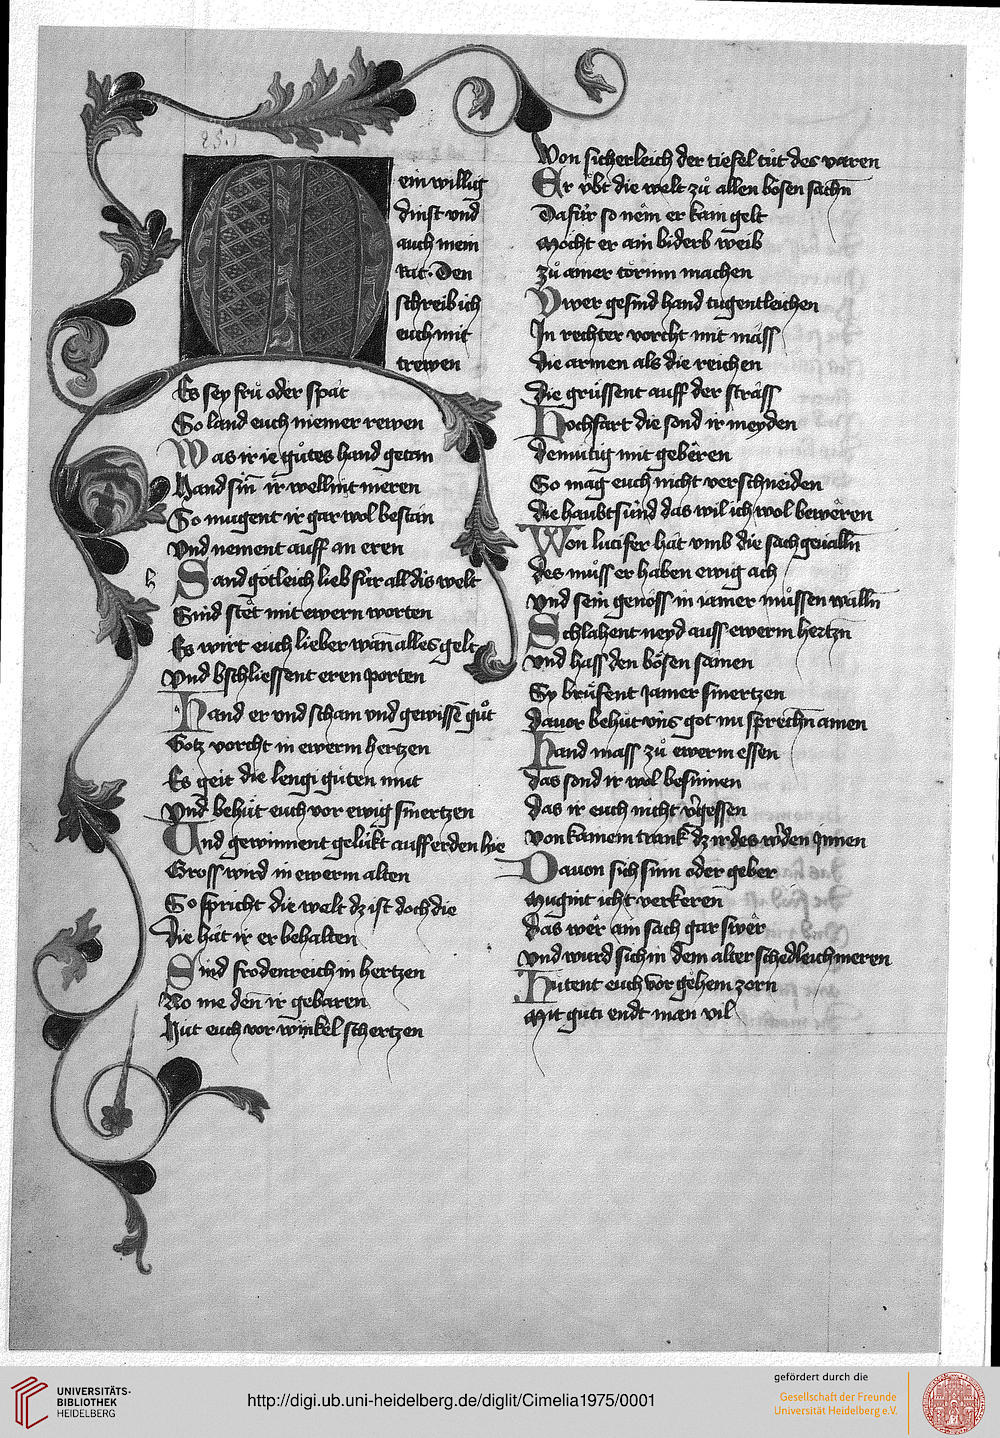 251
Mein willig
dinst vnd
auch mein
Rat · Den
schreib ich
euch mit
trewen
Es sey frů oder spät
So land euch niemer rewen
Was ir ie gůtes hand getan
Hand sin̄ ir wellint meren
So mugent ir gar wol bestan
Vnd nement auff an eren
h
Sand götleich lieb für all dis welt
Sind stet mit ewern worten
Es wirt euch lieber wan̄ alles gelt
Vnd bschliessent eren porten
Hand er vnd scham vnd gewissē gůt
Gotz vorcht in ewerm hertzen
Es geit die lengi gůten mut
Vnd behüt euch vor ewig smertzen
Vnd gewinnent gelükt auff erden hie
Gross wird in ewerm alten
So spricht die welt dz ist doch die
Die hät ir er behalten
Sind frödenreich in hertzen
No me den̄ ir gebaren
Hüt euch vor winkel schertzen
Won sicherleich der tiefel tůt des varen
Er übt die welt zů allen bösen sachn̄
Dafür so nem er kain gelt
Möcht er ain biderb weib
zů amer törinn machen
Vwer gesind hand tugentleichen
In rechter vorcht mit mäss
Die armen als die reichen
Die grüssent auff der sträss
Hochfart die sond ir meyden
Demütig mit geberen
So mag euch nicht verschneiden
Die haubtsünd das wil ich wol beweren
Won lucifer hät vmb die sach geualln̄
Des můss er haben ewig ach
Vnd sein genoss in iamer můssen walln̄
Schlahent neyd auss ewerm hertzn̄
Vnd hass den bösen samen
Sy brüfent Jamer smertzen
Dauor behüt vns got nu sprechn̄ amen
Hand mass zů ewerm essen
Das sond ir wol besinnen
Das ir euch nicht v̄gessen
Von kainem trank dz ir des w̄den Jnnen
Dauon sich sinn oder geber
Mugint icht verkeren
Das wer ain sach gar swer
Vnd wurd sich in dem alter schedleich meren
Hütent euch vor gehem zorn
Mit güti endt man vil
UNIVERSITÄTS-
BIBLIOTHEK
HEIDELBERG
http://digi.ub.uni-heidelberg.de/diglit/Cimelia1975/0001
gefördert durch die
Gesellschaft der Freunde
Universität Heidelberg e.V.